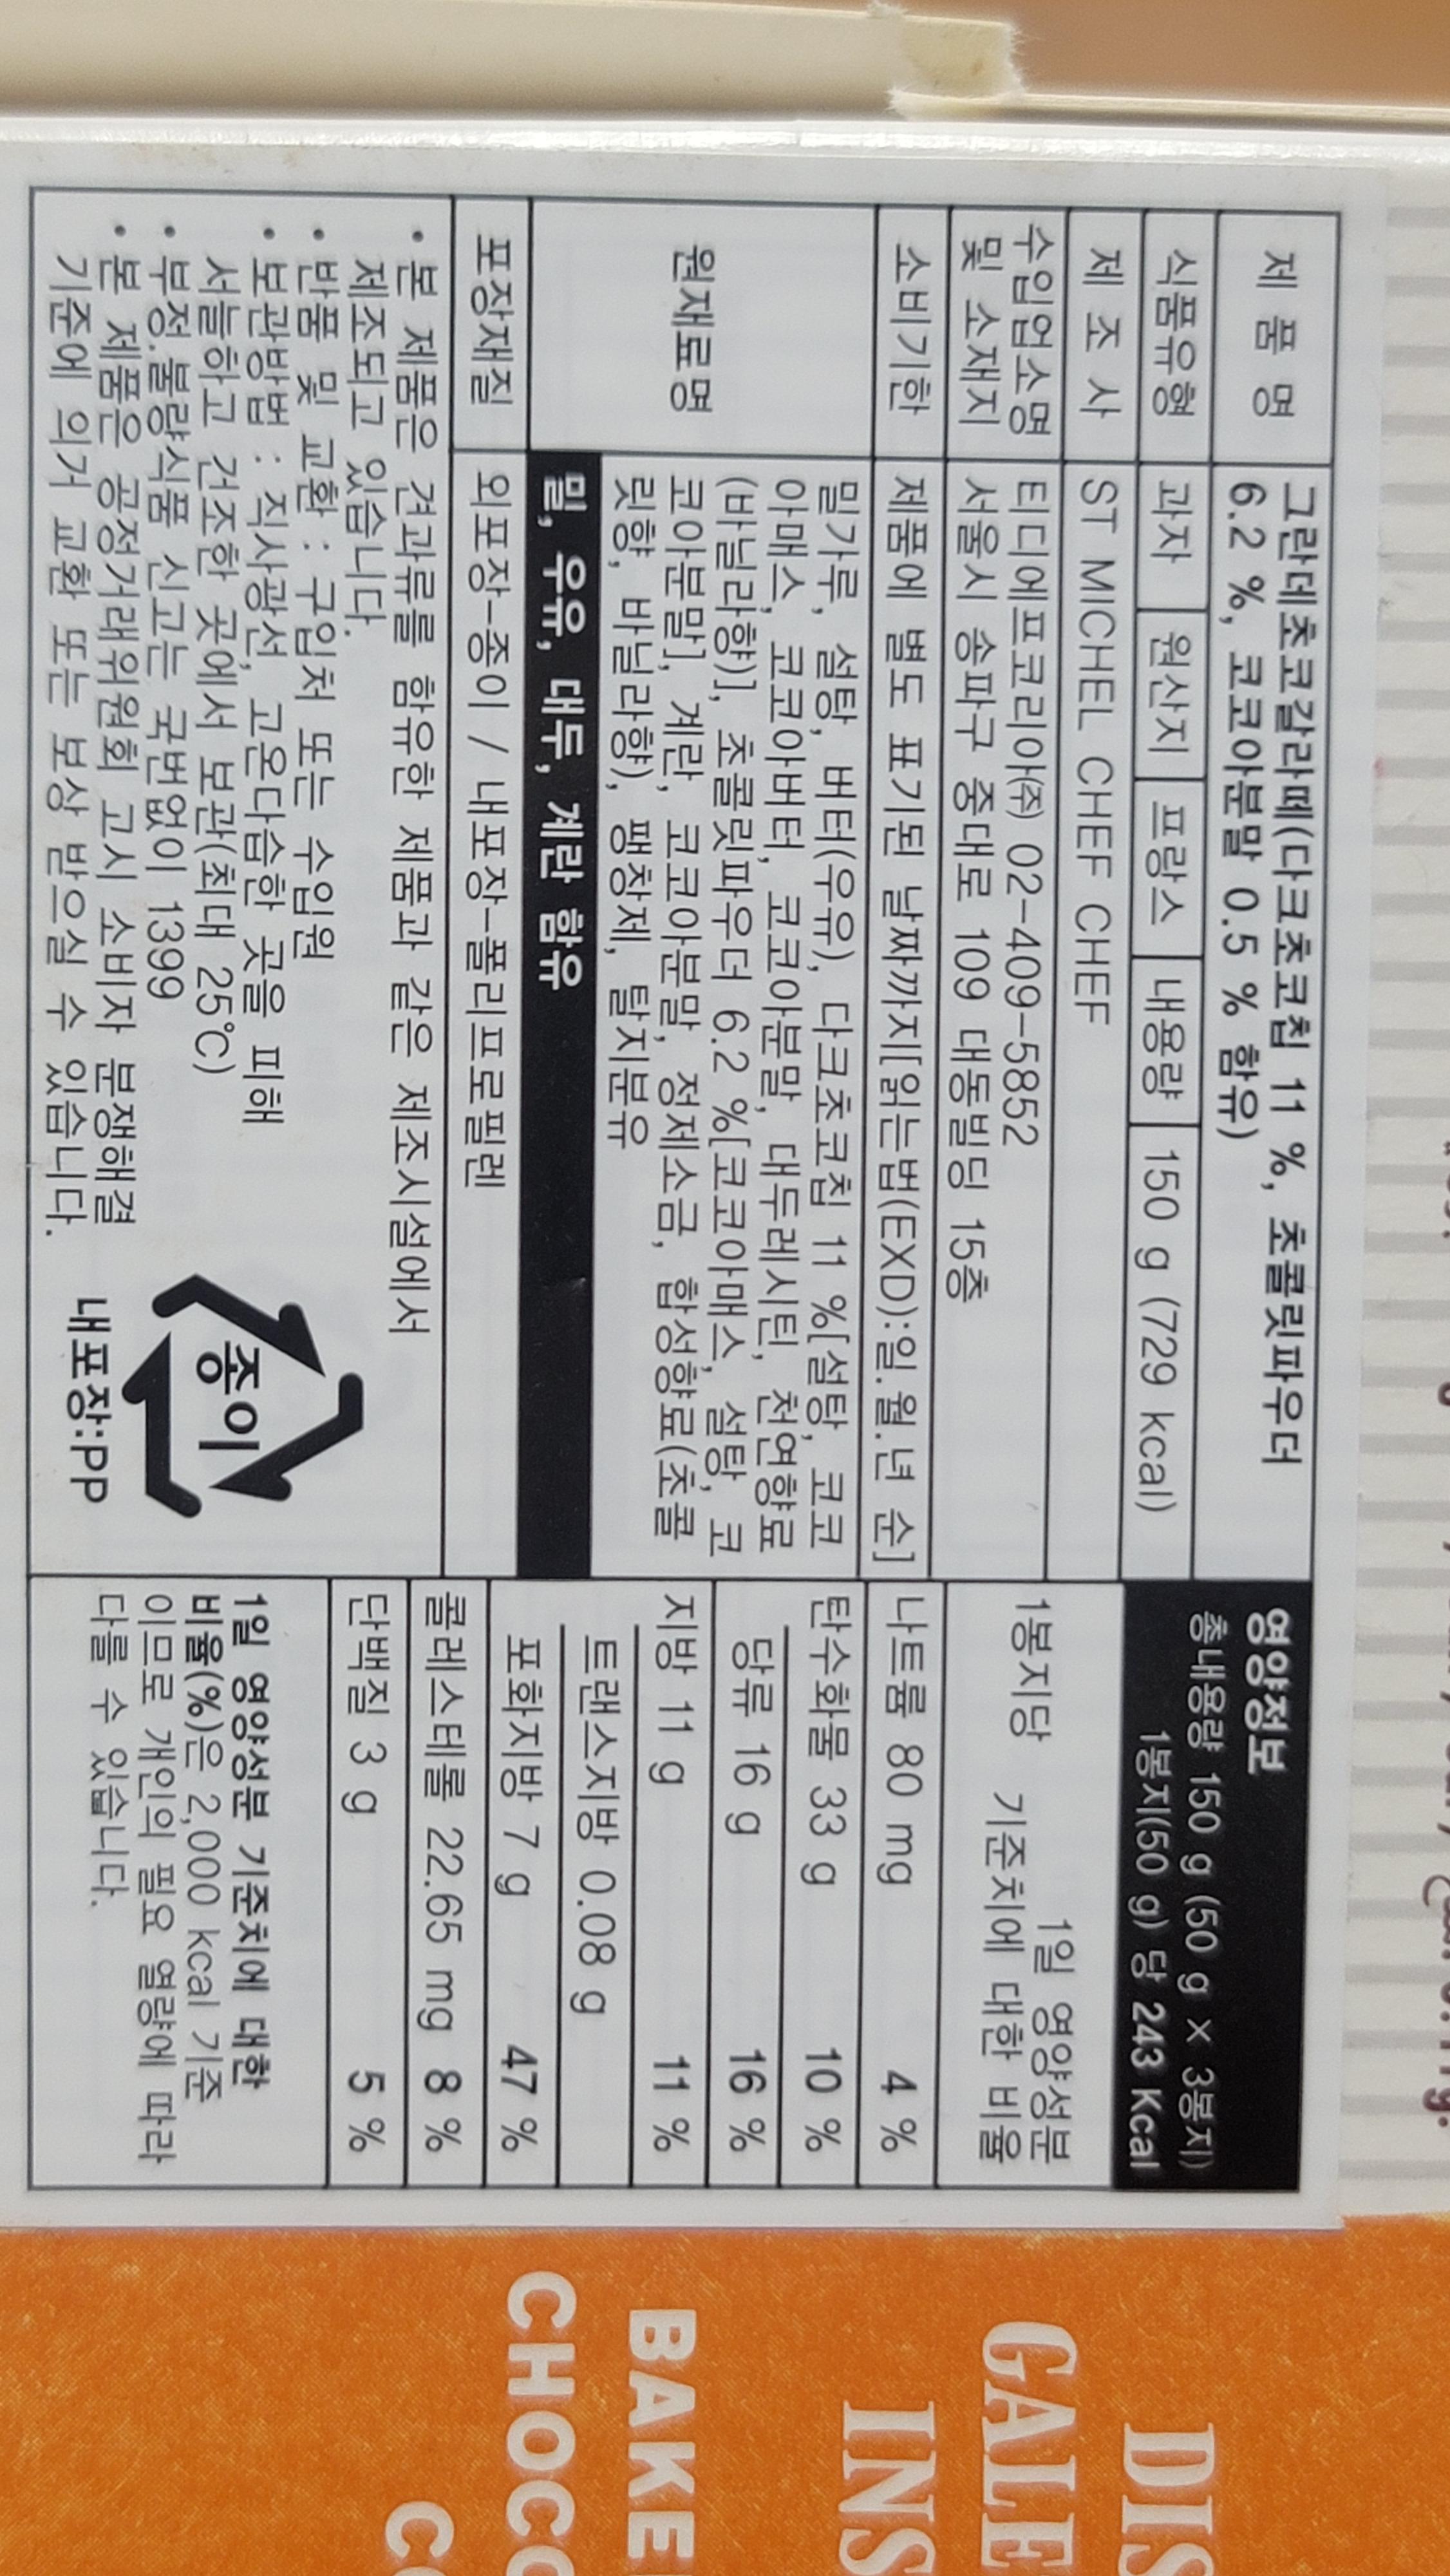 제 품 명
그란데초코갈라떼(다크초코칩 11 %, 초콜릿파우더
6.2 %, 코코아분말 0.5 % 함유)
식품유형 과자 원산지 프랑스 내용량 150 g (729 kcal)
제 조 사 ST MICHEL CHEF CHEF
수입업소명
및 소재지
티디에프코리아㈜ 02-409-5852
서울시 송파구 중대로 109 대동빌딩 15층
소비기한 제품에 별도 표기된 날짜까지[읽는법(EXD):일.월.년 순]
원재료명
밀가루, 설탕, 버터(우유), 다크초코칩 11 %[설탕, 코코
아매스, 코코아버터, 코코아분말, 대두레시틴, 천연향료
(바닐라향)], 초콜릿파우더 6.2 %[코코아매스, 설탕, 코
코아분말], 계란, 코코아분말, 정제소금, 합성향료(초콜
릿향, 바닐라향), 팽창제, 탈지분유
밀, 우유, 대두, 계란 함유
포장재질 외포장-종이 / 내포장-폴리프로필렌
• 본 제품은 견과류를 함유한 제품과 같은 제조시설에서
제조되고 있습니다.
• 반품 및 교환 : 구입처 또는 수입원
• 보관방법 : 직사광선, 고온다습한 곳을 피해
서늘하고 건조한 곳에서 보관(최대 25℃)
• 부정.불량식품 신고는 국번없이 1399
• 본 제품은 공정거래위원회 고시 소비자 분쟁해결
기준에 의거 교환 또는 보상 받으실 수 있습니다.
종이
내포장:PP
영양정보
총내용량 150 g (50 g × 3봉지)
1봉지(50 g) 당 243 Kcal
1봉지당 1일 영양성분
기준치에 대한 비율
나트륨 80 mg 4 %
탄수화물 33 g 10 %
당류 16 g 16 %
지방 11 g 11 %
트랜스지방 0.08 g
포화지방 7 g 47 %
콜레스테롤 22.65 mg 8 %
단백질 3 g 5 %
1일 영양성분 기준치에 대한
비율(%)은 2,000 kcal 기준
이므로 개인의 필요 열량에 따라
다를 수 있습니다.
DIS
GALE
INS
BAKE
CHOCO